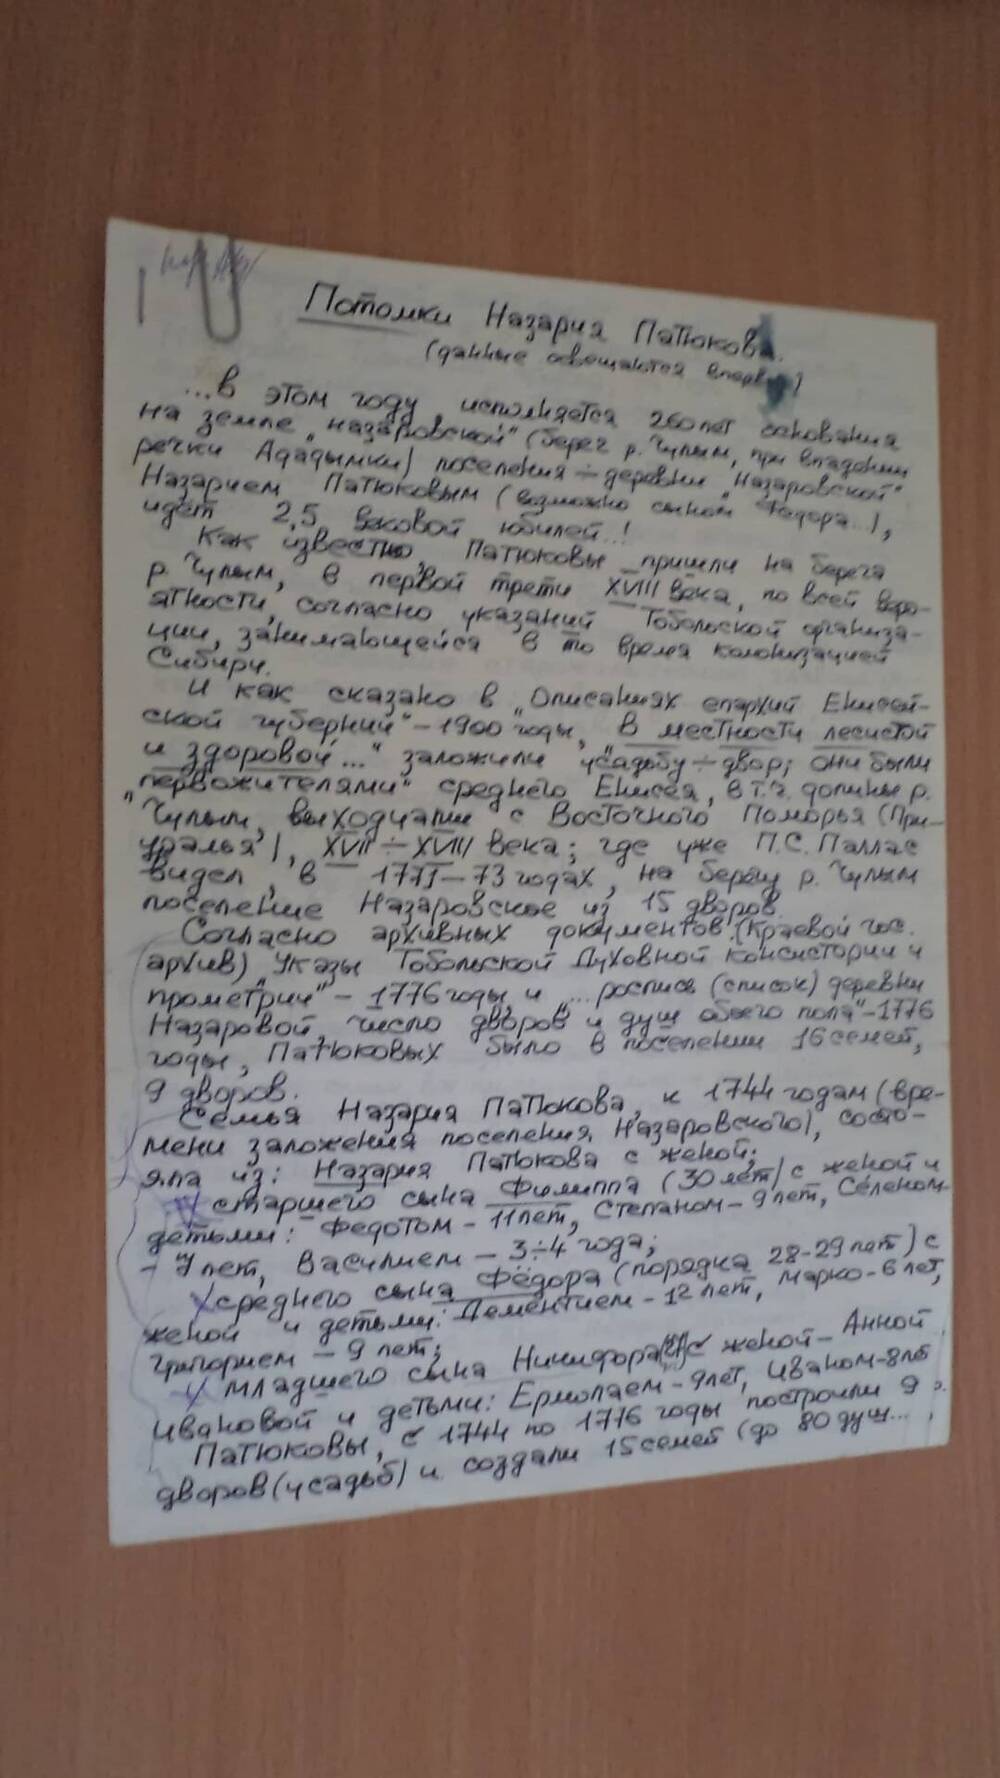 Потомки Назария Патюкова.
(данные освещаются впервые)
...В этом году исполняется 260 лет основания
на земле „назаровской" (берег р. Чулым, при впадении
речки Ададымки) поселения ÷ деревни „Назаровской"
Назарием Патюковым (возможно сыном Федора...),
идёт 2,5 вековой юбилей..!
Как известно, Патюковы пришли на берега
р. Чулым, в первой трети XVIII века, по всей веро-
ятности, согласно указаний Тобольской организа-
ции, занимающейся в то время колонизацией
Сибири.
И как сказано в „Описаниях епархий Енисей-
ской губерний" – 1900 годы, „В местности лесистой
и здоровой..." заложили усадьбу ÷ двор; они были
„первожителями" среднего Енисея, в т.ч. долины р.
Чулым, выходцами с Восточного Поморья (При-
уралья), XVII ÷ XVIII века; где уже П.С. Паллас
видел, в 1771–73 годах, на берегу р. Чулым
поселение Назаровское из 15 дворов.
Согласно архивных документов (Краевой гос.
архив) „Указы Тобольской Духовной консистории и
прометрии" – 1776 годы, и „...роспись (список) деревни
Назаровой, число дворов и душ обоего пола" – 1776
годы, Патюковых было в поселении 16 семей,
9 дворов.
Семья Назария Патюкова, к 1744 годам (вре-
мени заложения поселения Назаровского), состо-
яла из: Назария Патюкова с женой;
старшего сына Филиппа (30 лет) с женой и
детьми: Федотом – 11 лет, Степаном – 9 лет, Селеном
– 7 лет, Василием – 3÷4 года;
среднего сына Фёдора (порядка 28-29 лет) с
женой и детьми: Дементием – 12 лет, Марко – 6 лет,
Григорием – 9 лет;
младшего сына Никифора с женой – Анной
Ивановой и детьми: Ермолаем – 9 лет, Иваном – 8 лет
Патюковы, с 1744 по 1776 годы построили 9
дворов (усадьб) и создали 15 семей (до 80 душ...,